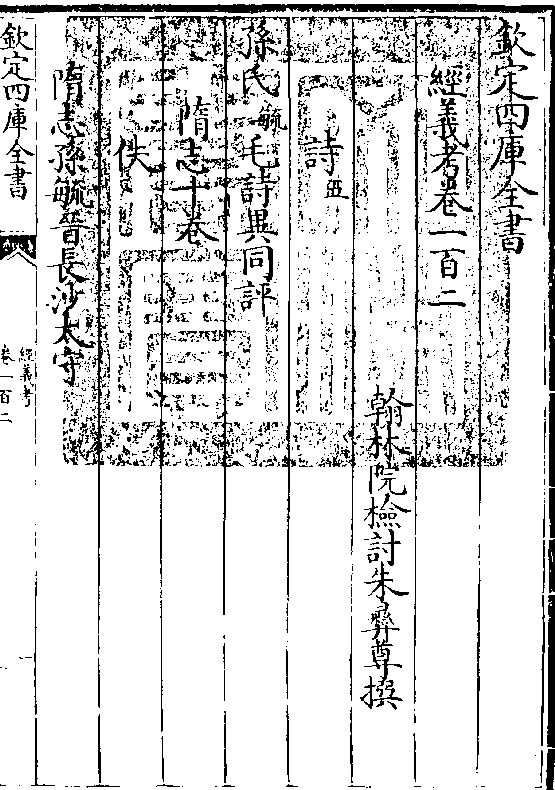 欽定四庫全書
經義考卷一百二
翰林院檢討朱彝尊撰
詩五
孫氏毓毛詩異同評
隋志十卷
佚
隋志孫毓晉長沙太守
欽定四庫全書
經義考
卷一百二